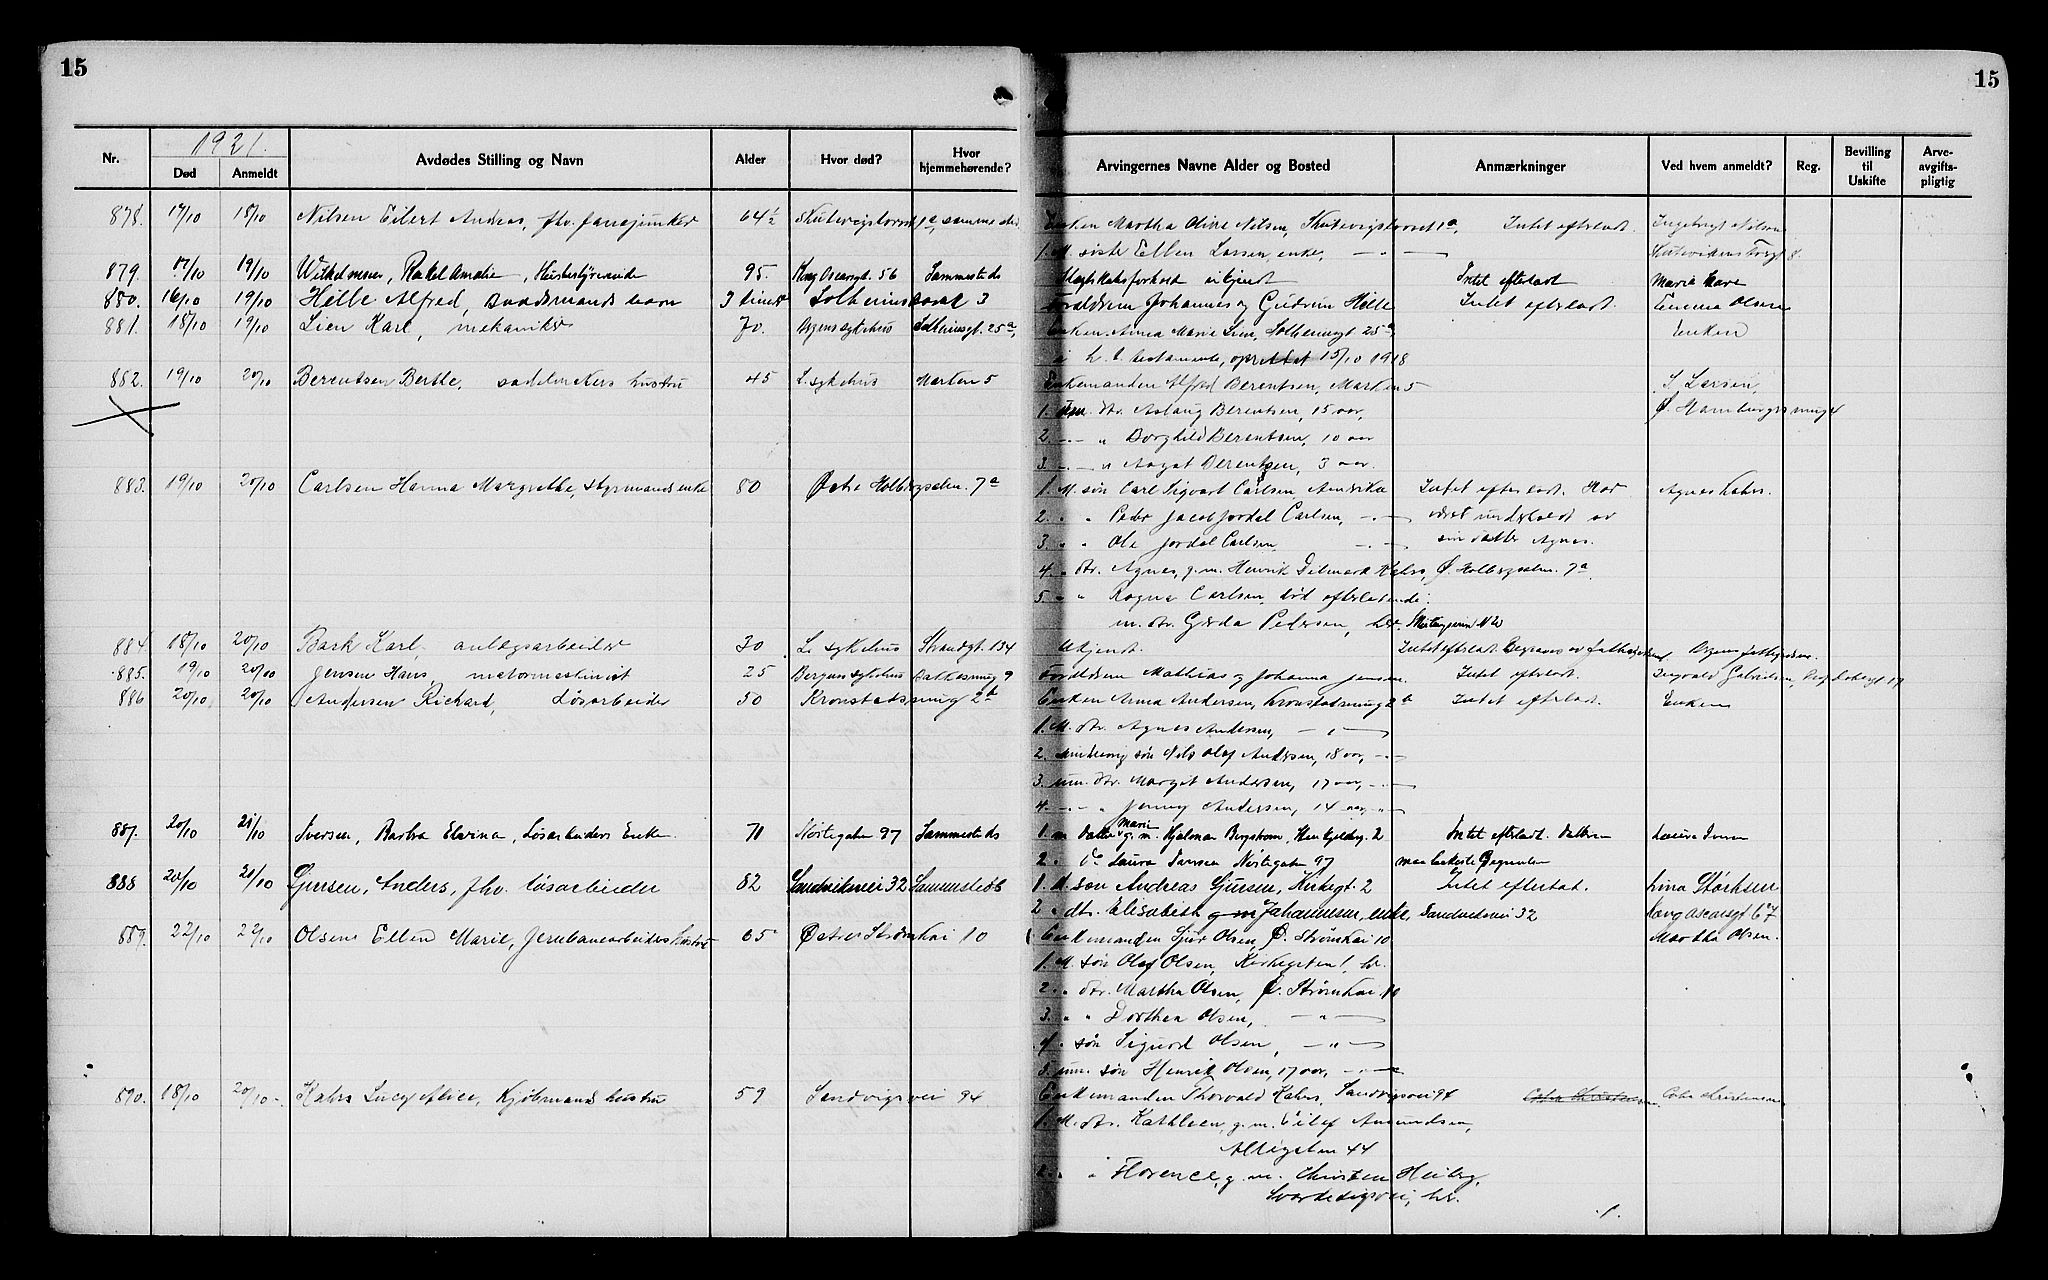 15
15
Nr. 1921. Avdødes Stilling og Navn Alder Hvor død? Hvor hjemmehørende? Arvingernes Navne Alder og Bosted Anmærkninger Ved hvem anmeldt? Reg. Bevilling til Uskifte Arve-avgifts-pligtig
Død Anmeldt
878. 17/10 18/10 Nilsen Eilert Andreas, fhv. fanejunker 64½ Skutevigstorvet 1a, samme sted Enken Martha Olive Nilsen, Skutevigstorvet 1a, Intet efterladt. Ingeborg Nilsen
1. M. Ellen Larsen, enke, — " — Skutevikens Torg 8.
879. 17/10 19/10 Wilhelmsen, Rakel Amalie, Husbestyrerinde 95. Kong Oscarsgt. 56 Sammesteds Slegtskabsforhold ukjendt Intet efterladt Maria
880. 16/10 19/10 Hille Alfred, budsmands barn 3 timer Solheimsgaten 3 Forældrene Johannes og Gudrun Hille Intet efterladt Olsen
881. 18/10 19/10 Lien Karl, mekaniker 70. Bergens sykehus Solheimsgt. 25a, Enken Anna Marie Lien, Solheimsgt 25a, Enken
testamente, oprettet 15/10 1918
882. 19/10 20/10 Berentsen Berthe, sadelmakers hustru 45 L. sykehus Marken 5 Enkemanden Alfred Berentsen, Marken 5 S. Larsen,
1. um. dtr. Aslaug Berentsen, 15 aar, Ø. Hamburgersmug 4
2. — " — " Borghild Berentsen, 10 aar
3. — " — " Aagot Berentsen, 3 aar.
883. 19/10 20/10 Carlsen Hanna Margrethe, styrmands enke 80 Østre Holbergsalm. 7a 1. M. søn Carl Sigvart Carlsen Amerika Intet efterladt. Har Agnes Kahrs.
2. " " Peder Jacob Jordal Carlsen, — " — været underholdt av
3. " " Ole Jordal Carlsen, — " — sin datter Agnes.
4. " dtr. Agnes, g.m. Henrik Ditmardt Kahrs, Ø. Holbergsalm. 7a.
5. " " Ragna Carlsen, død efterlatende:
m. dtr. Gerda Petersen, her.
884 18/10 20/10 Bark Karl, anlægsarbeider 30 L. sykehus Strandgt. 134 Ukjendt. Intet efterladt. Begraves av fattigvæsenet. Bergens fattigvæsen.
885. 19/10 20/10 Jensen Hans, motormaskinist 25 Bergens sykehus 9 Forældrene Mathias og Johanna Jensen. Intet efterladt. Ingvald Gabrielsen, 17
886 20/10 20/10 Andersen Richard, Løsarbeider 50 Kronstadsmug 2b Enken Anna Andersen, Kronstadsmug 2b Intet efterladt. Enken
1. M. dtr. Agnes Andersen, — " —
2. mindreaarig søn Nils Olaf Andersen, 18 aar, — " —
3. um. dtr. Margit Andersen, 17 aar, — " —
4. — " — " Jenny Andersen, 14 aar, — " —
887. 20/10 21/10 Iversen, Barbra Elvina, Løsarbeiders Enke 71 Nøstegaten 97 Sammesteds 1. m Datter Marie g.m. Hjalmar Bergstrøm, 2 Intet efterladt. Datteren Laura Iversen
2. " Do Laura Iversen Nøstegaten 97 maa bekoste Begravelsen
888 20/10 21/10 Gjersen, Anders, fhv. løsarbeider 82 Sandviksvei 32 Sammesteds 1. M. søn Andreas Gjersen, Kirkegt. 2 Intet efterlat. Lina Størksen
2 " dtr. Elisabeth g m Johannesen, enke, Sandviksvei 32 Kong Oscarsgt 67
889. 22/10 22/10 Olsen Ellen Marie, Jernbanearbeiders hustru 65 Østre Strømkai 10 Enkemanden Sjur Olsen, Ø. Strømkai 10 Martha Olsen.
1. M. søn Olaf Olsen, Kirkegaten 1, her.
2. " dtr. Martha Olsen, Ø. Strømkai 10
3. " " Dorthea Olsen, — " —
4 " søn Sigurd Olsen, — " —
5. um. søn Henrik Olsen, 17 aar, — " —
890. 18/10 20/10 Kahrs Lucy Alice, Kjøbmands hustru 59 Sandvigsvei 94 Enkemanden Thorvald Kahrs, Sandvigsvei 94
1. M. dtr. Kathleen, g.m. Eilef Amundsen,
Allégaten 44
2. " " Florence, g.m. Christen Heiberg,
her.